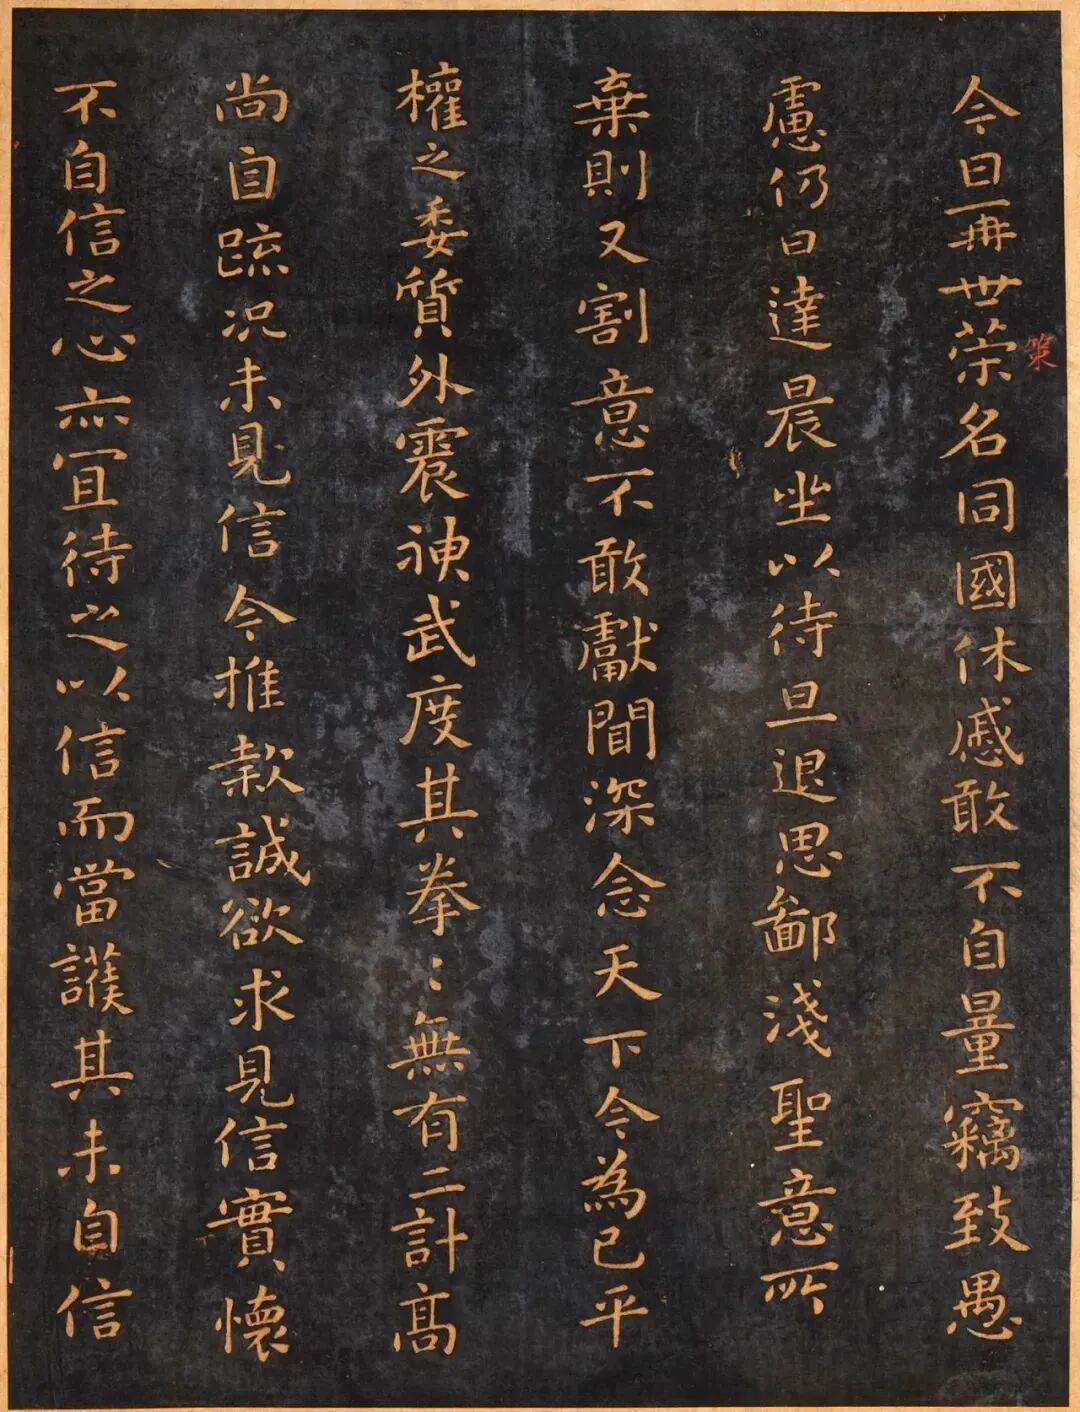 今日冊世荣名同國休慼敢不自量竊致愚
策
慮仍日達晨坐以待旦退思鄙淺聖意所
棄則又割意不敢獻聞深念天下今為已平
權之委質外震神武度其拳〻無有二計高
尚自疏况未見信今推款誠欲求見信實懷
不自信之心亦宜待之以信而當護其未自信